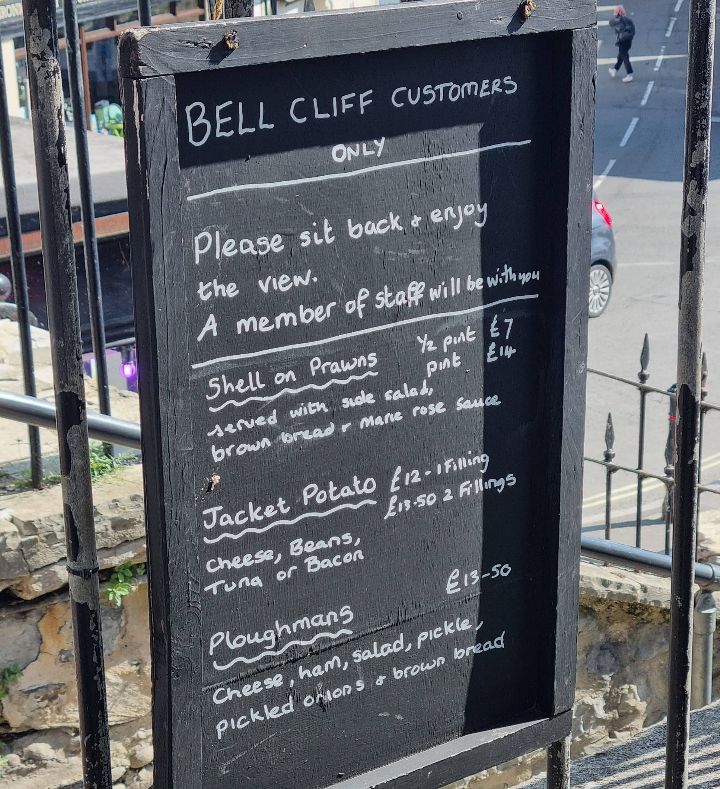 BELL CLIFF CUSTOMERS
ONLY
Please sit back & enjoy
the view.
A member of staff will be with you
Shell on Prawns ½ pint £7
pint £14
served with side salad,
brown bread & marie rose sauce
Jacket Potato £12-1 Filling
£13.50 2 Fillings
Cheese, Beans,
Tuna or Bacon
£13-50
Ploughmans
Cheese, ham, salad, pickle,
pickled onions & brown bread